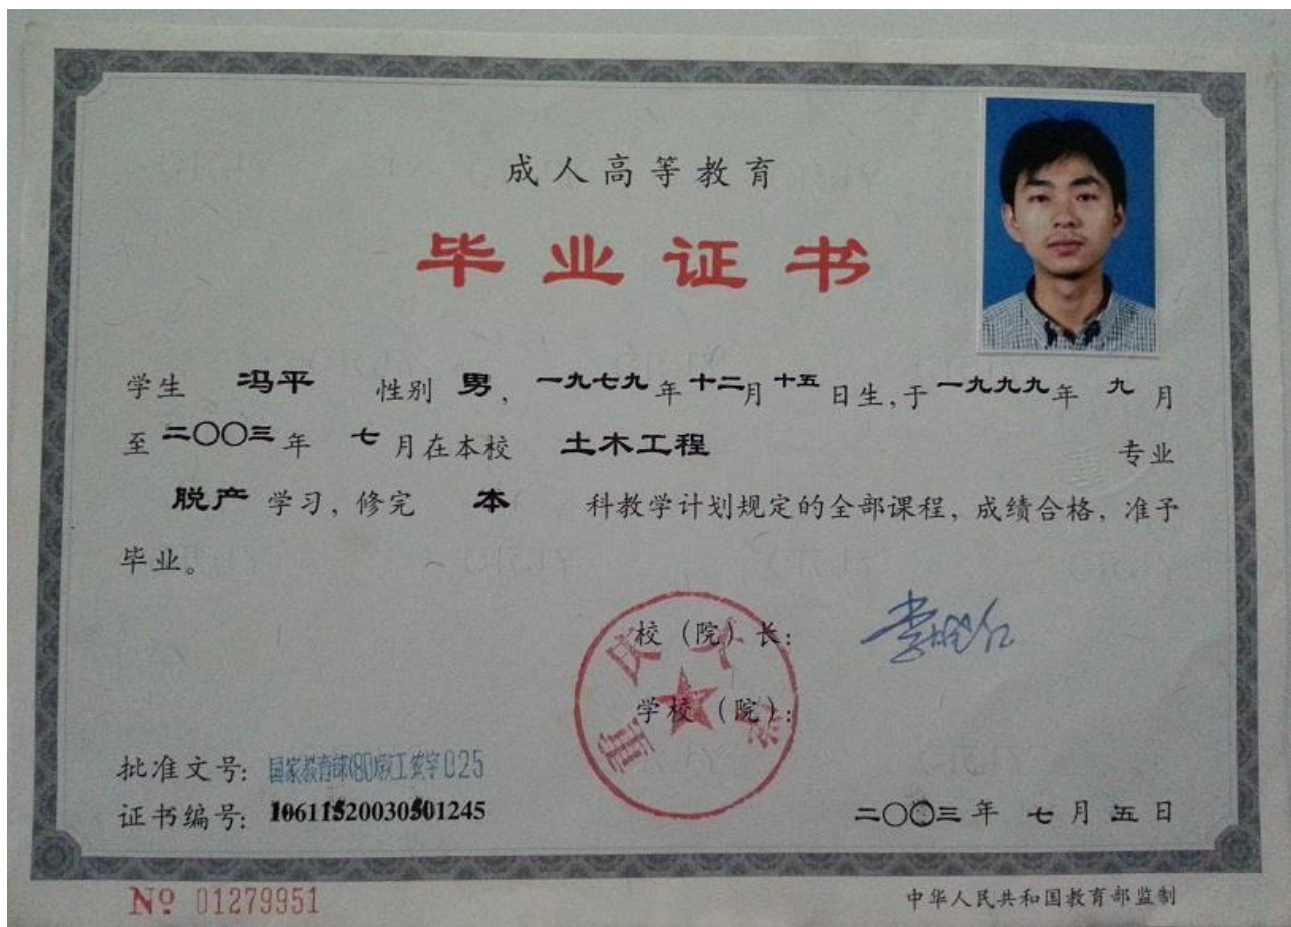 成人高等教育
毕业证书
学生 冯平 性别 男, 一九七九年十二月十五日生,于一九九九年 九 月
至二〇〇三年 七月在本校 土木工程 专业
脱产 学习, 修完 本 科教学计划规定的全部课程, 成绩合格, 准予
毕业。
校(院)长:
重庆大学
学校(院):
批准文号:
证书编号: 10611520030501245
二〇〇三年 七月五日
№ 01279951
中华人民共和国教育部监制